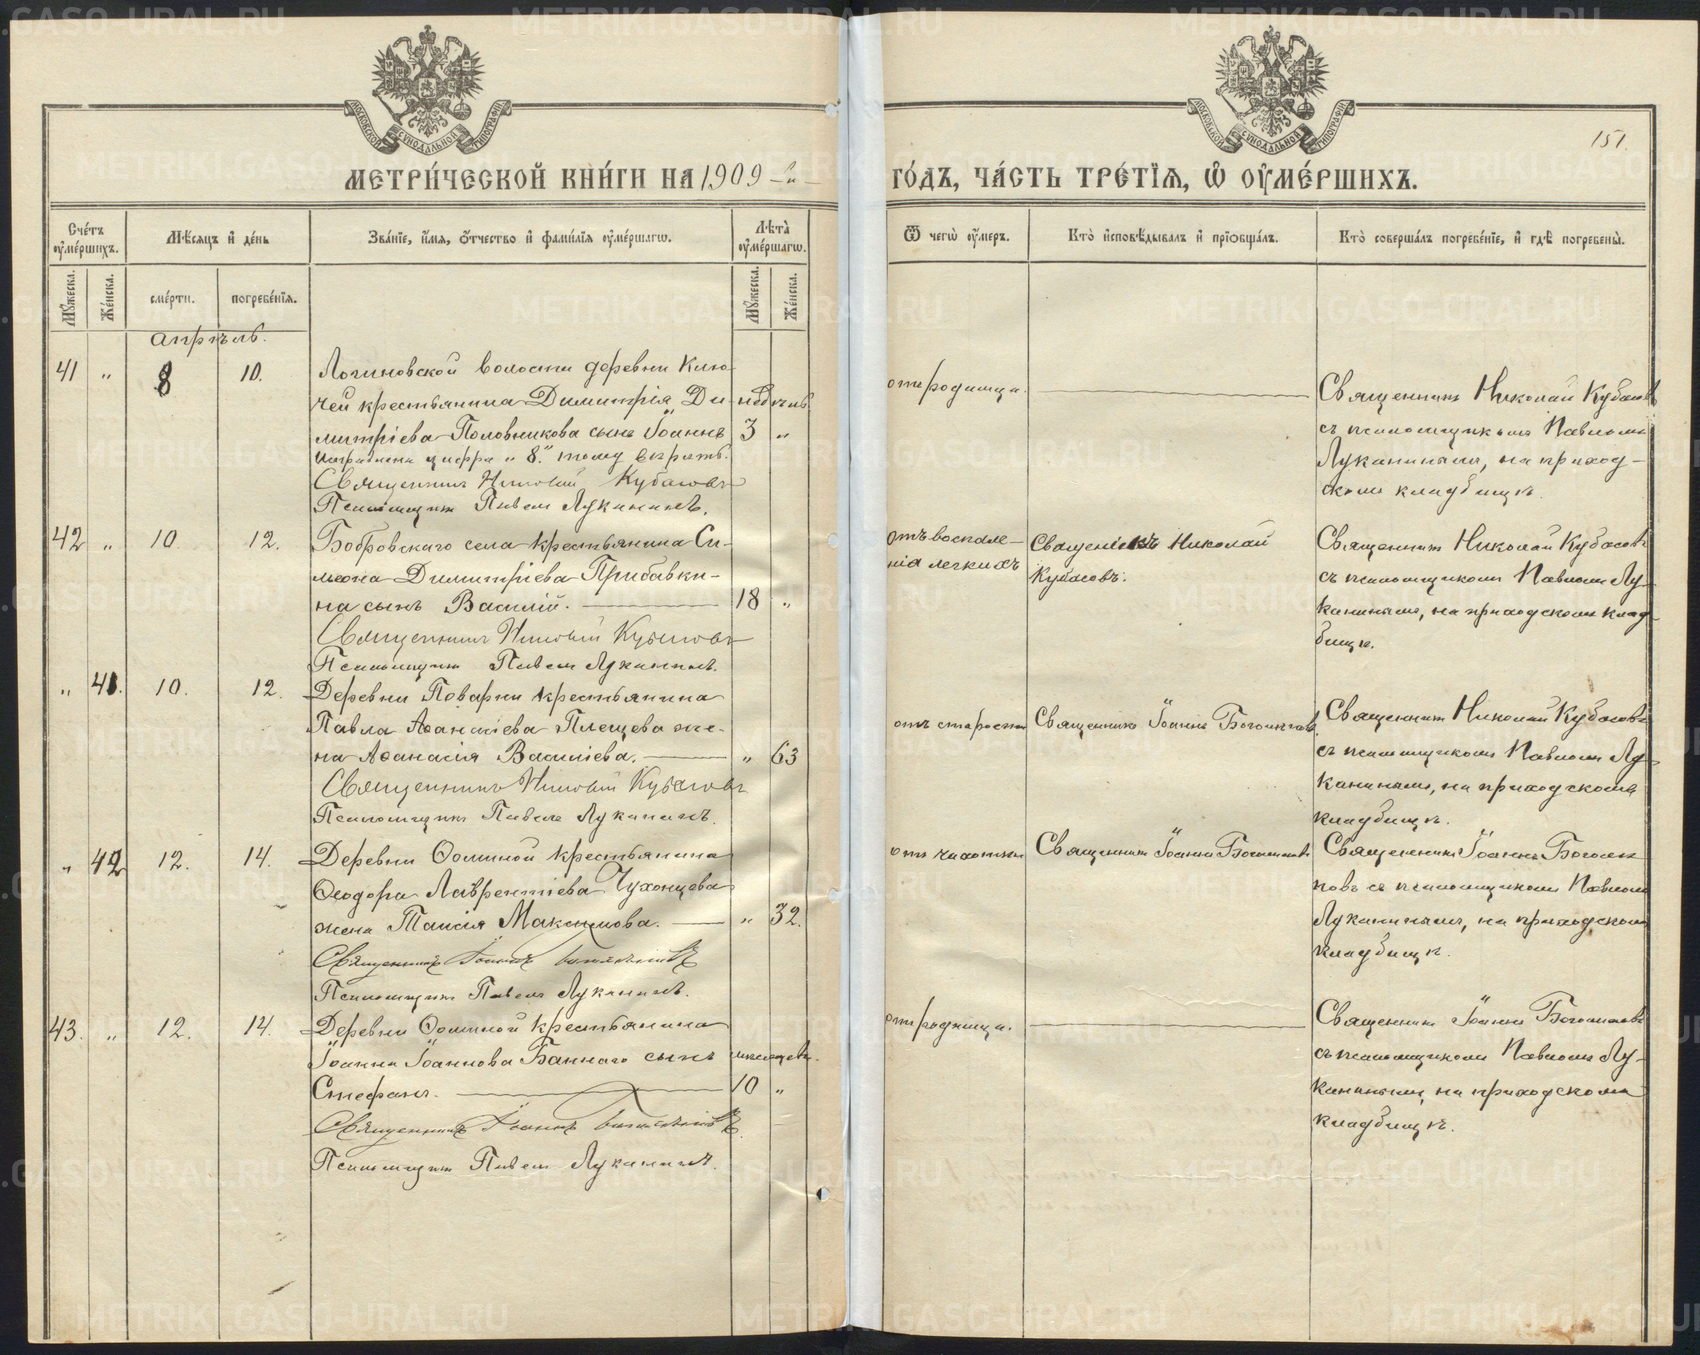 МЕТРИ́ЧЕСКОЙ КНИ́ГИ НА 1909-й
ГО́ДЪ, ЧА́СТЬ ТРЕ́ТЇѦ, Ѡ҆ ОУ҆МЕ́РШИХЪ.
151.
Сче́тъ оу҆ме́ршихъ.
Мѣ́сѧцъ и҆ де́нь
Зва́нїе, и҆́мѧ, ѻ҆́тчество и҆ фами́лїѧ оу҆ме́ршагѡ.
Лѣта̀ оу҆ме́ршагѡ.
Ѿ чегѡ̀ оу҆́меръ.
Кто̀ и҆сповѣ́дывалъ и҆ прїѡбща́лъ.
Кто̀ соверша́лъ погребе́нїе, и҆ гдѣ̀ погребены̀.
Мꙋ́жеска.
Же́нска.
сме́рти.
погребе́нїѧ.
Мꙋ́жеска.
Же́нска.
Апрѣль.
41 " 8 10. Логиновской волости деревни Клю-
чей крестьянина Димитрія Ди-
митріева Половникова сынъ Іоаннъ 3 "
Исправлена цифра "8." тому вѣрить.
Священникъ Николай Кубасовъ
Псаломщикъ Павелъ Луканинъ.
отъ родимца.
Священникъ Николай Кубасовъ
съ псаломщикомъ Павломъ
Луканинымъ, на приход-
скомъ кладбищѣ.
42 " 10. 12. Бобровскаго села крестьянина Си-
меона Димитріева Прибавки-
на сынъ Василій. 18 "
Священникъ Николай Кубасовъ
Псаломщикъ Павелъ Луканинъ.
отъ воспале-
нія легкихъ
Священникъ Николай
Кубасовъ.
Священникъ Николай Кубасовъ
съ псаломщикомъ Павломъ Лу-
канинымъ, на приходскомъ клад-
бищѣ.
" 41. 10. 12. Деревни Поварни крестьянина
Павла Аѳанасіева Плещева же-
на Аѳанасія Василіева. " 63
Священникъ Николай Кубасовъ
Псаломщикъ Павелъ Луканинъ.
отъ старости
Священникъ Іоаннъ
Священникъ Николай Кубасовъ
съ псаломщикомъ Павломъ Лу-
канинымъ, на приходскомъ
кладбищѣ.
" 42 12. 14. Деревни Ѳоминой крестьянина
Ѳеодора Лаврентіева Чухонцева
жена Таисія Максимова. " 32.
Священникъ Іоаннъ
Псаломщикъ Павелъ Луканинъ.
отъ чахотки
Священникъ Іоаннъ
Священникъ Іоаннъ
съ псаломщикомъ Павломъ
Луканинымъ, на приходскомъ
кладбищѣ.
43. " 12. 14. Деревни Ѳоминой крестьянина
Іоанна Іоаннова Баннаго сынъ мѣсяцевъ.
Стефанъ. 10 "
Священникъ Іоаннъ
Псаломщикъ Павелъ Луканинъ.
отъ родимца.
Священникъ Іоаннъ
съ псаломщикомъ Павломъ Лу-
канинымъ, на приходскомъ
кладбищѣ.